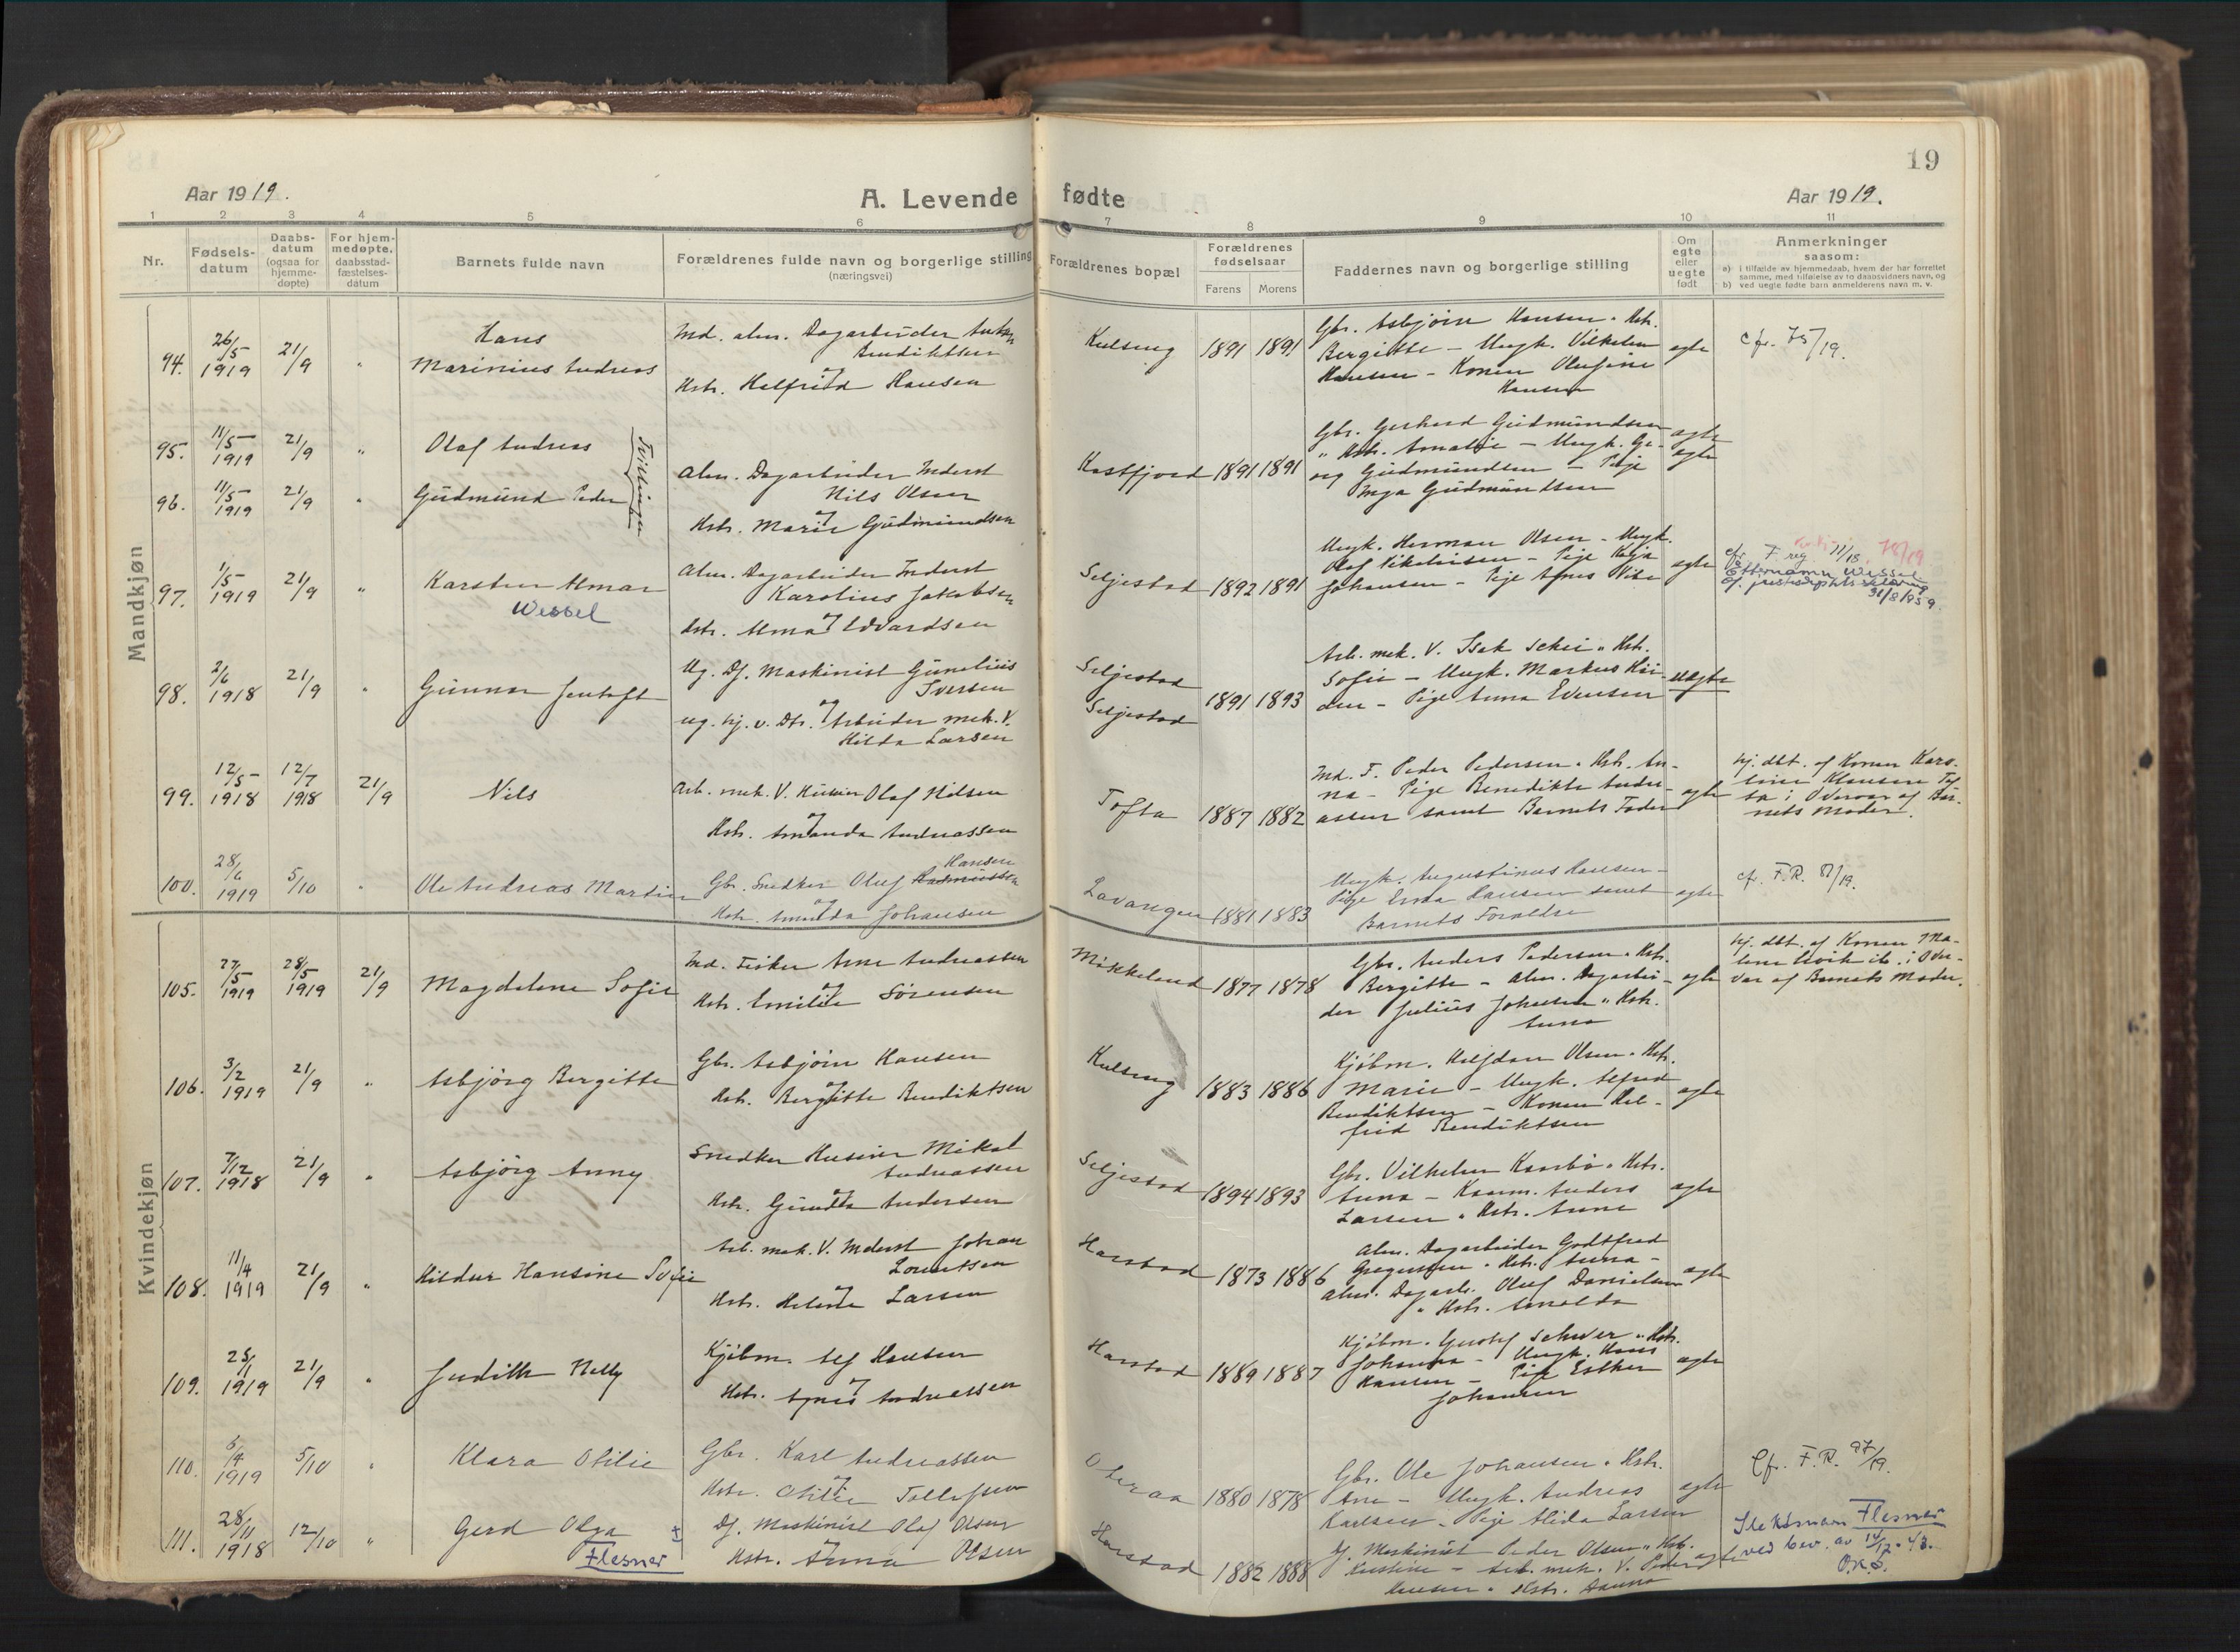 19
Aar 1919.
A. Levende fødte
Aar 1919.
1 2 3 4 5 6 7 8 9 10 11
Nr.
Fødsels-
datum
Daabs-
datum
(ogsaa for
hjemme-
døpte)
For hjem-
medøpte.
daabsstad-
fæstelses-
datum
Barnets fulde navn
Forældrenes fulde navn og borgerlige stilling
(næringsvei)
Forældrenes bopæl
Forældrenes
fødselsaar
Farens Morens
Faddernes navn og borgerlige stilling
Om
egte
eller
uegte
født
Anmerkninger
saasom:
a) i tilfælde av hjemmedaab, hvem der har forrettet
samme, med tilføielse av to daabsvidners navn, og
b) ved uegte fødte barn anmelderens navn m. v.
Mandkjøn
94. 26/5 1919 21/9 "
Hans
Marinius Andreas
Ind. alm. Dagarbeider Anton
Benediktsen
og
Hstr. Halfrid Hansen
Kulseng 1891 1891
Gbr. Asbjørn Hansen " Hstr.
Bergitte – Ungk. Vilhelm
Hansen – Konen Olufine
Hansen
egte
cfr. 75/19.
95. 11/5 1919 21/9 "
Olaf Andreas
96. 11/5 1919 21/9 "
Gudmund Peder
Tvillinger
Alm. Dagarbeider Inderst
Nils Olsen
og
Hstr. Marie Gudmundsen
Kasfjord 1891 1891
Gbr. Gerhard Gudmundsen
" Hstr. Amalie – Ungk. Ge-
org Gudmundsen – Pige
Inga Gudmundsen
egte
egte
97. 1/5 1919 21/9 "
Karsten Almar
Wessel
Alm. Dagarbeider Inderst
Karolius Jakobsen
og
Hstr. Alma Edvardsen
Seljestad 1892 1891
Ungk. Herman Olsen – Ungk.
Olaf Mikalsen – Pige Kaja
Johansen – Pige Agnes Vibe
egte
cfr. F reg 11/18 78/19
Etternamn Wessel
cf. justisdptets erklæring
31/8/1959.
98. 2/6 1918 21/9 "
Gunnar Jentoft
Ug. Df. Maskinist Gunelius
Iversen
og
ug. hj. v. Dtr. Arbeider mek. V.
Hilda Larsen
Seljestad
Seljestad
1891 1893
Arb. mek. V. Isak Schei " Hstr.
Sofie – Ungk. Markus
– Pige Anna Evensen
uegte
99. 12/5 1918 12/7 1918 21/9
Nils
Arb. mek. V. Huseier Olaf Nilsen
og
Hstr. Amanda Andreassen
Tofta 1887 1882
Ind. F. Peder Pedersen " Hstr. An-
na – Pige Benedikte Andre-
assen samt Barnets Fader
egte
Hj. dbt. af Konen Karo-
line Klausen Tof-
ta i Overvær af Bar-
nets Moder.
100. 28/6 1919 5/10 "
Ole Andreas Martin
Hansen
Gbr. Snedker Oluf Rasmussen
og
Hstr. Amalda Johansen
Lavangen 1881 1883
Ungk. Augustinus Hansen –
Pige Erna Hansen samt
Barnets Forældre
egte
cf. F.R. 81/19.
Kvindekjøn
105. 27/5 1919 28/5 1919 21/9
Magdelene Sofie
Ind. Fisker Arne Andreassen
og
Hstr. Emilie Sørensen
Mikkelund 1877 1878
Gbr. Anders Pedersen " Hstr.
Bergitte – Alm. Dagarbei-
der Julius Johansen " Hstr.
Anna
egte
Hj. dbt. af Konen Ma-
lene ib. i Over-
vær af Barnets Moder.
106. 3/2 1919 21/9 "
Asbjørg Bergitte
Gbr. Asbjørn Hansen
og
Hstr. Bergitte Benediktsen
Kulseng 1883 1886
Kjøbm. Halfdan Olsen " Hstr.
Marie – Ungk. Alfred
Benediktsen – Konen Hal-
frid Benediktsen
egte
107. 7/12 1918 21/9 "
Asbjørg Anny
Snedker Huseier Mikal
Andreassen
og
Hstr. Gunda Andersen
Seljestad 1894 1893
Gbr. Vilhelm Kanebø " Hstr.
Anna – Kaarm. Anders
Larsen " Hstr. Anne
egte
108. 11/4 1919 21/9 "
Hildur Hansine Sofie
Arb. mek. V. Inderst Johan
Lorentsen
og
Hstr. Helene Larsen
Harstad 1873 1886
Alm. Dagarbeider Godtfred
Gregussen " Hstr. Anna –
Alm. Dagarb. Oluf Danielsen
" Hstr. Amalda
egte
109. 25/1 1919 21/9 "
Judith Nelly
Kjøbm. Alf Hansen
og
Hstr. Agnes Andreassen
Harstad 1889 1887
Kjøbm. Gustaf Schwer " Hstr.
Johanna – Ungk. Hans
Hansen – Pige Esther
Johansen
egte
110. 6/4 1919 5/10 "
Klara Otilie
Gbr. Karl Andreassen
og
Hstr. Otilie Tollefsen
Oteraa 1880 1878
Gbr. Ole Johansen " Hstr.
Ane – Ungk. Andreas
Karlsen – Pige Alida Larsen
egte
Cfr. F.R. 97/19.
111. 28/11 1918 12/10 "
Gerd Olga
Flesner
Df. Maskinist Olaf Olsen
og
Hstr. Anna Olsen
Harstad 1882 1888
Df. Maskinist Peder Olsen " Hstr.
Kristine – Arb. mek. V. Peder
Hansen " Hstr. Hanna
egte
Slektsnavn Flesner
ved bev. av 14/12-43.
O.K.S.